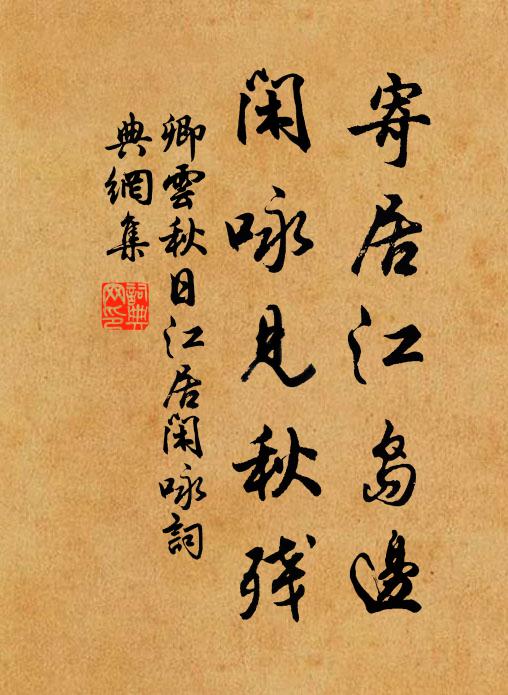 寄居江島邊
閑咏見秋殘
卿雲秋日江居閑咏詞
典網集
詞典網印